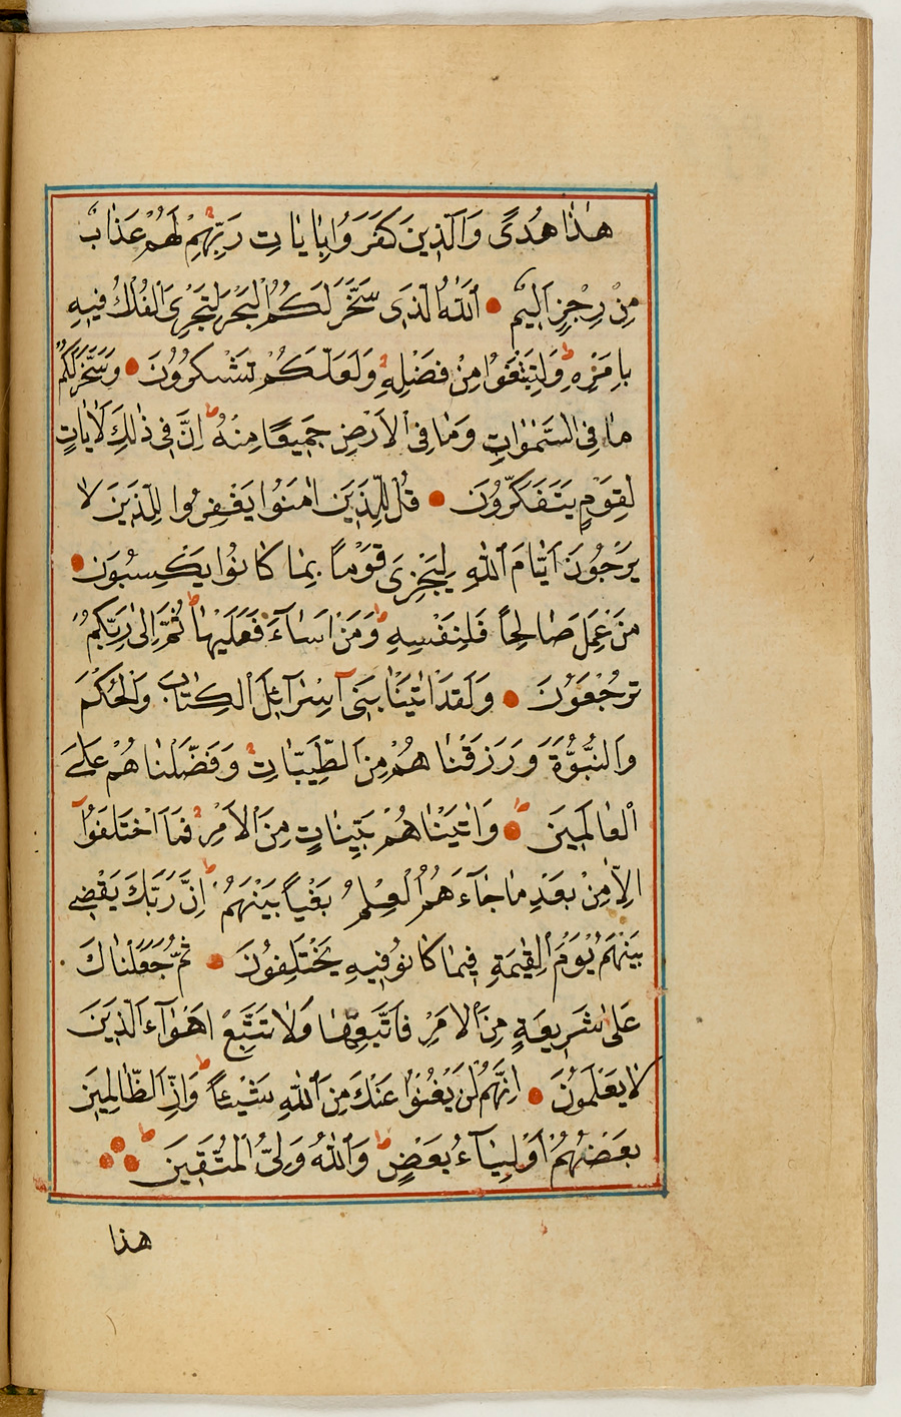 هٰذَا هُدًى وَالَّذِينَ كَفَرَوُا بِاٰيَاتِ رَبِّهِمْ لَهُمْ عَذَابٌ
مِنْ رِجْزٍ اَلِيمٌ ● اَللّٰهُ الَّذِى سَخَّرَ لَكُمُ الْبَحْرَ لِتَجْرِىَ الْفُلْكُ فِيهِ
بِاَمْرِهِ ط وَلِتَبْتَغُوا مِنْ فَضْلِهِ وَلَعَلَّكُمْ تَشْكُرُونَ ● وَسَخَّرَ لَكُمْ
مَا فِى السَّمٰوَاتِ وَمَا فِى الْاَرْضِ جَمِيعًا مِنْهُ ط اِنَّ فِى ذٰلِكَ لَاٰيَاتٍ
لِقَوْمٍ يَتَفَكَّرُونَ ● قُلْ لِلَّذِينَ اٰمَنُوا يَغْفِرُوا لِلَّذِينَ لَا
يَرْجُونَ اَيَّامَ اللّٰهِ لِيَجْزِىَ قَوْمًا بِمَا كَانُوا يَكْسِبُونَ ●
مَنْ عَمِلَ صَالِحًا فَلِنَفْسِهِ ط وَمَنْ اَسَاءَ فَعَلَيْهَا ط ثُمَّ اِلٰى رَبِّكُمْ
تُرْجَعُونَ ● وَلَقَدْ اٰتَيْنَا بَنِى اِسْرَائِلَ الْكِتَابَ وَالْحُكْمَ
وَالنُّبُوَّةَ وَرَزَقْنَاهُمْ مِنَ الطَّيِّبَاتِ وَفَضَّلْنَاهُمْ عَلَى
الْعَالَمِينَ ● وَاٰتَيْنَاهُمْ بَيِّنَاتٍ مِنَ الْاَمْرِ فَمَا اخْتَلَفُوا
اِلَّا مِنْ بَعْدِ مَا جَاءَهُمُ الْعِلْمُ بَغْيًا بَيْنَهُمْ ط اِنَّ رَبَّكَ يَقْضِى
بَيْنَهُمْ يَوْمَ الْقِيٰمَةِ فِيمَا كَانُوا فِيهِ يَخْتَلِفُونَ ● ثُمَّ جَعَلْنَاكَ
عَلٰى شَرِيعَةٍ مِنَ الْاَمْرِ فَاتَّبِعْهَا وَلَا تَتَّبِعْ اَهْوَاءَ الَّذِينَ
لَا يَعْلَمُونَ ● اِنَّهُمْ لَنْ يُغْنُوا عَنْكَ مِنَ اللّٰهِ شَيْئًا ط وَاِنَّ الظَّالِمِينَ
بَعْضُهُمْ اَوْلِيَاءُ بَعْضٍ ط وَاللّٰهُ وَلِىُّ الْمُتَّقِينَ ط
هذا